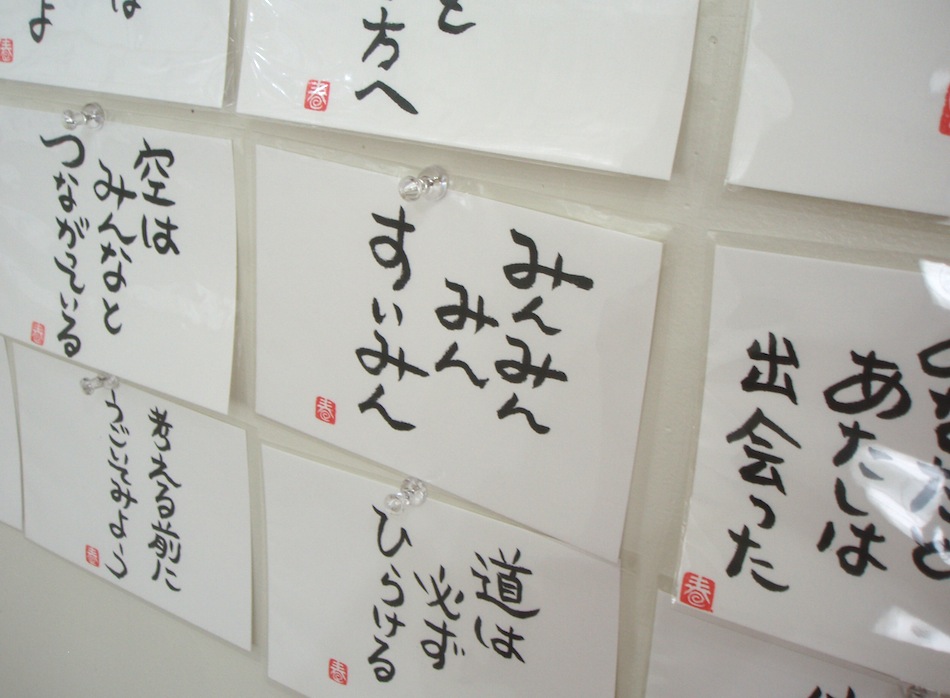 方へ
春
空は
みんなと
つながっている
春
みんみん
みん
すいみん
春
あたしは
出会った
春
考える前に
うごいてみよう
春
道は
必ず
ひらける
春